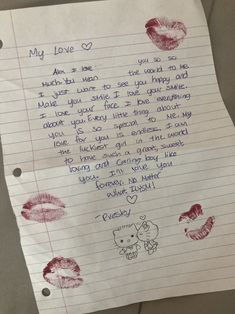 My Love ♡
Alex I love you so so
Much. You mean the world to me
I just want to see you happy and
Make you smile I love your smile.
I love your face I love everything
about you. Every little thing about
you is so special to me. My
love for you is endless. I am
the luckiest girl in the world
to have such a great, sweet
loving and caring boy like
you. I'll love you
forever, No Matter
What ILYSM!
-Presley